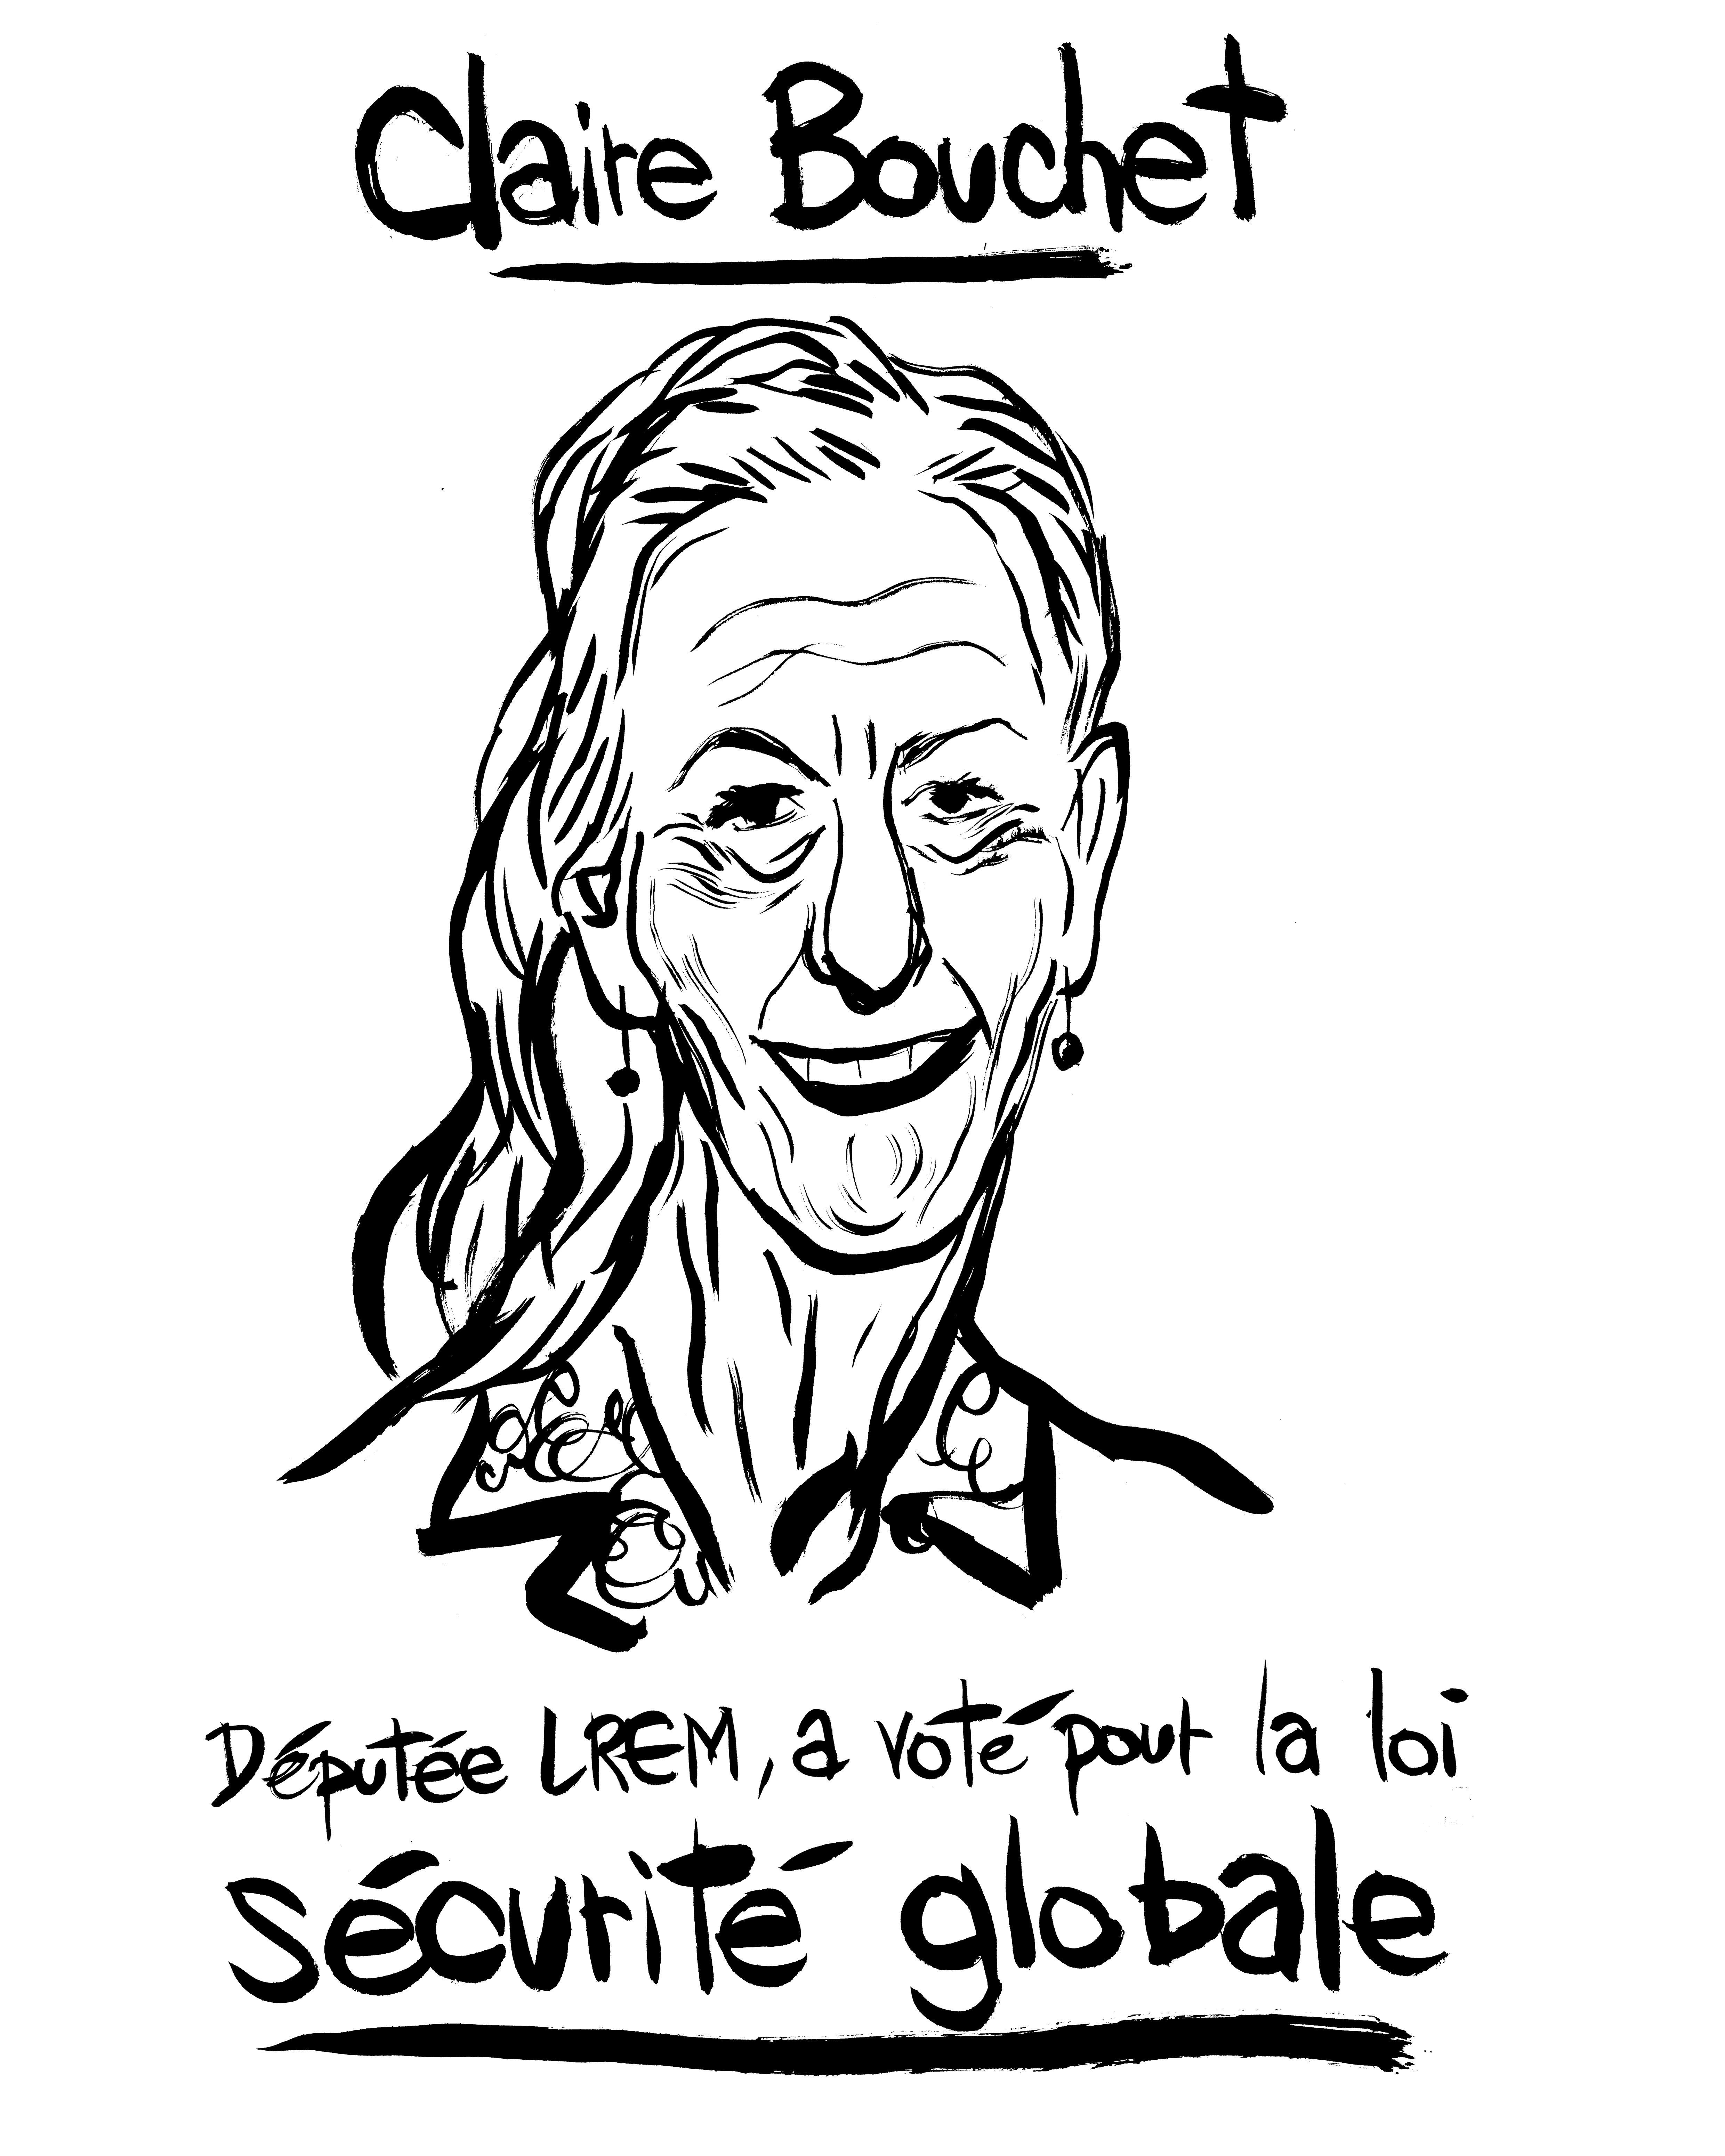 Claire Bouchet
Députée LREM, a voté pour la loi
sécurité globale